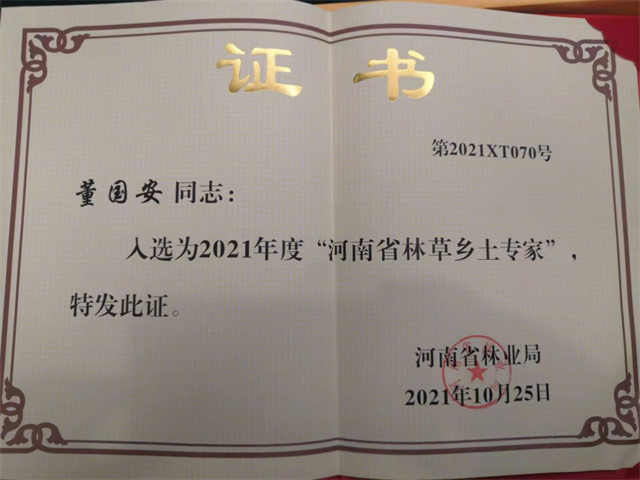 证书
第2021XT070号
董国安 同志：
入选为2021年度“河南省林草乡土专家”，
特发此证。
河南省林业局
2021年10月25日